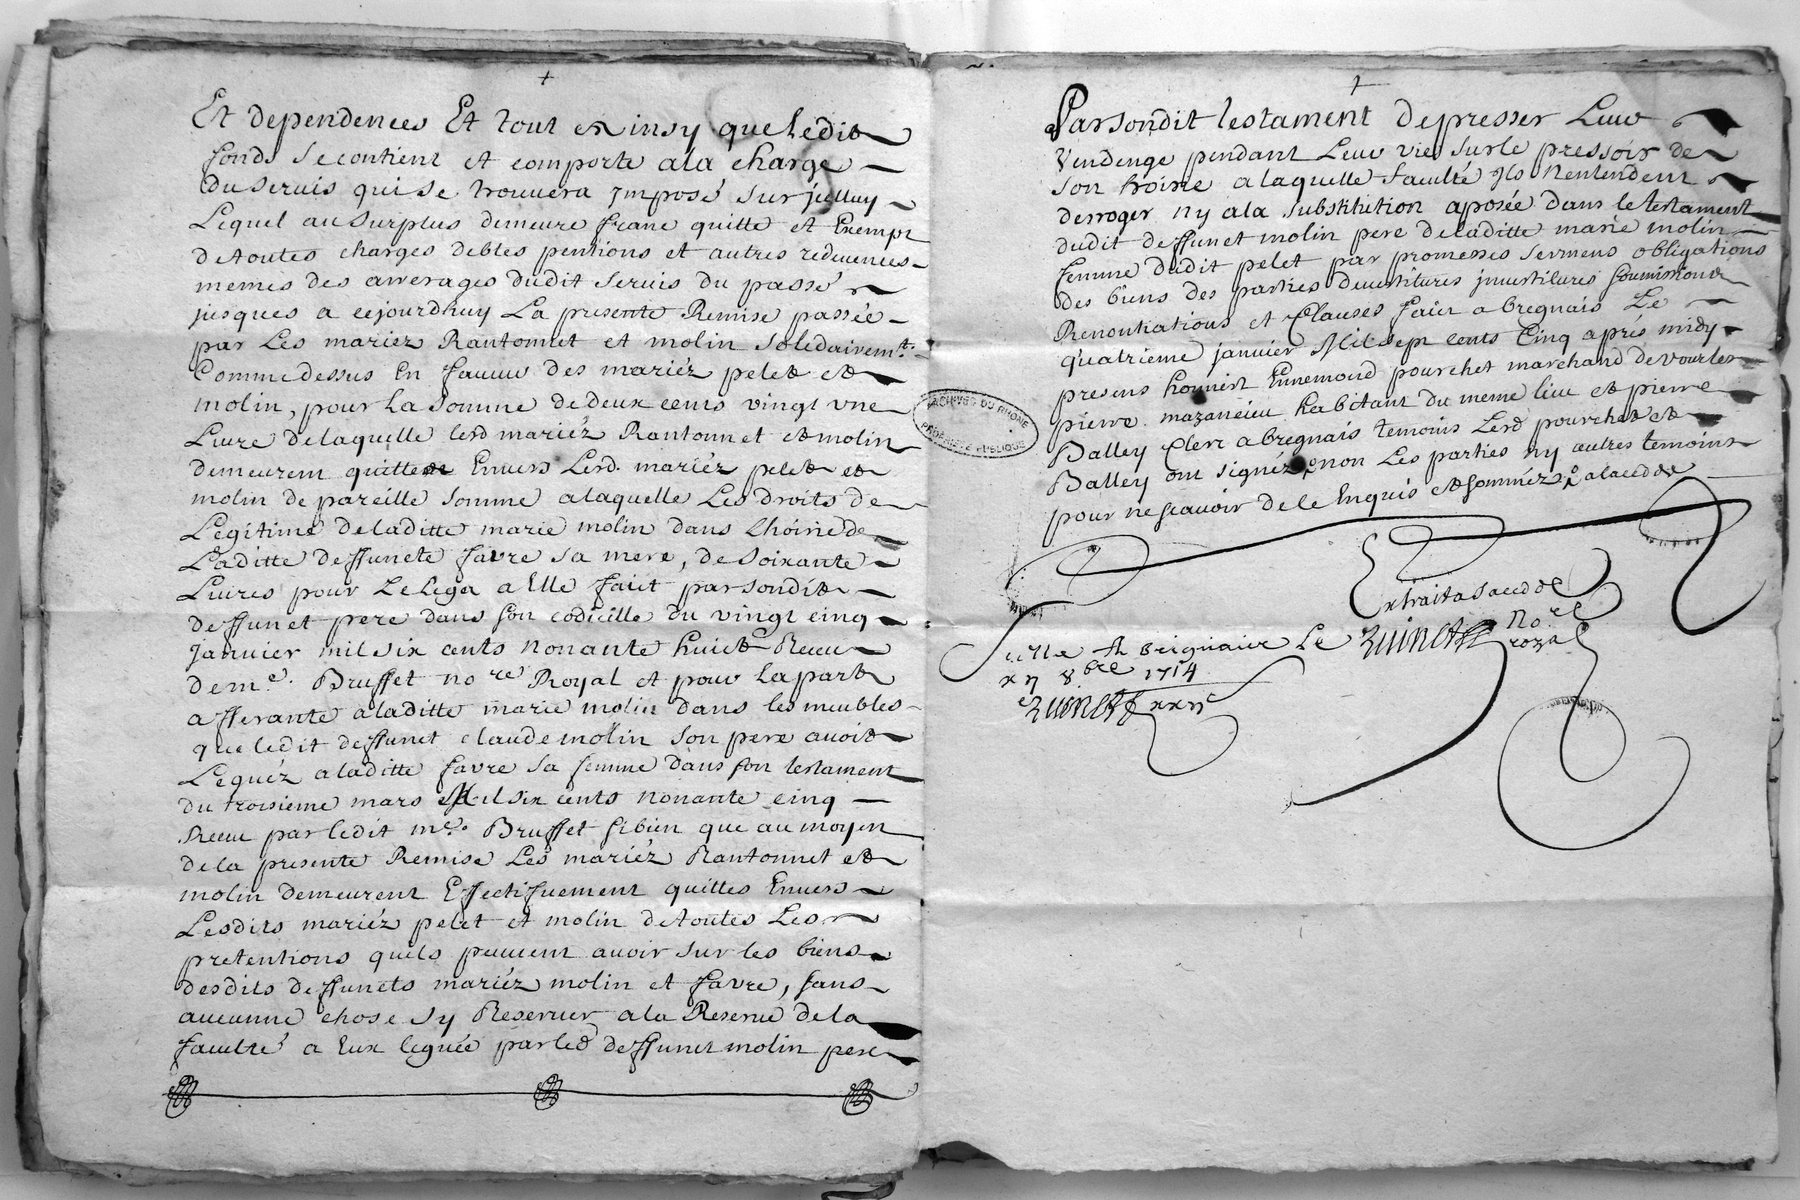 Et dependences Et tout en insy que ledit
fonds se contient et comporte a la charge
du servis qui se trouvera Imposé sur jcelluy
Lequel au surplus demeure franc quitte et Exempt
de toutes charges debtes pentions et autres redevences
memes des arrerages dudit servis du passé
jusques a cejourdhuy La presente Remise passée
par Les mariez Rantonnet et molin solidairemt.
Comme dessus En faveur des mariéz pelet et
molin, pour La somme de deux cents vingt une
Livre de laquelle lesd mariéz Rantonnet et molin
demeurent quittes Envers Lesd. mariéz pelet et
molin de pareille somme a laquelle Les droits de
Legitime de laditte marie molin dans Lhoirie de
Laditte deffuncte favre sa mere, de soixante
Livres pour Le Lega a Elle fait par sondit
deffunct pere dans son codicille du vingt cinq
Janvier mil six cents nonante huict Receu
de me. Bruffet nore Royal et pour La part
afferante a laditte marie molin dans les meubles
que ledit deffunct claude molin son pere avoit
Leguéz a laditte favre sa femme dans son testament
du troisieme mars Mil six cents nonante cinq
Receu par ledit me. Bruffet si bien que au moyen
de la presente Remise Les mariéz Rantonnet et
molin demeurent Effectifvement quittes Envers
Lesdits mariéz pelet et molin de toutes Les
pretentions quils peuvent avoir sur les biens
desdits deffuncts mariéz molin et favre, sans
aucunne chose sy Reserver a la Reserve de la
faculté a Eux leguée par led deffunct molin pere
Par sondit testament de presser Leur
vendenge pendant Leur vie sur le pressoir de
son hoirie a laquelle faculté Ils n'entendent
desroger ny a la substitution aposée dans le testament
dudit deffunct molin pere de laditte marie molin
femme dudit pelet par promesses sermens obligations
des biens des parties devestitures jnvestitures soumissions
Renontiations et Clauses fait a bregnais Le
quatrieme janvier Mil sept cents Cinq aprés midy
presens honnest Ennemond pourchet marchand de vourles
pierre mazaneieu habitant du meme lieu et pierre
Balley Clerc a bregnais temoins Lesd pourchet et
Balley ont signéz non Les parties ny autres temoins
pour ne scavoir de le Enquis et sommez a la cedde
ARCHIVES DU RHONE
PROPRIÉTÉ PUBLIQUE
Extrait a sa cedde
nore
royal
Brignaire Le
8bre 1714